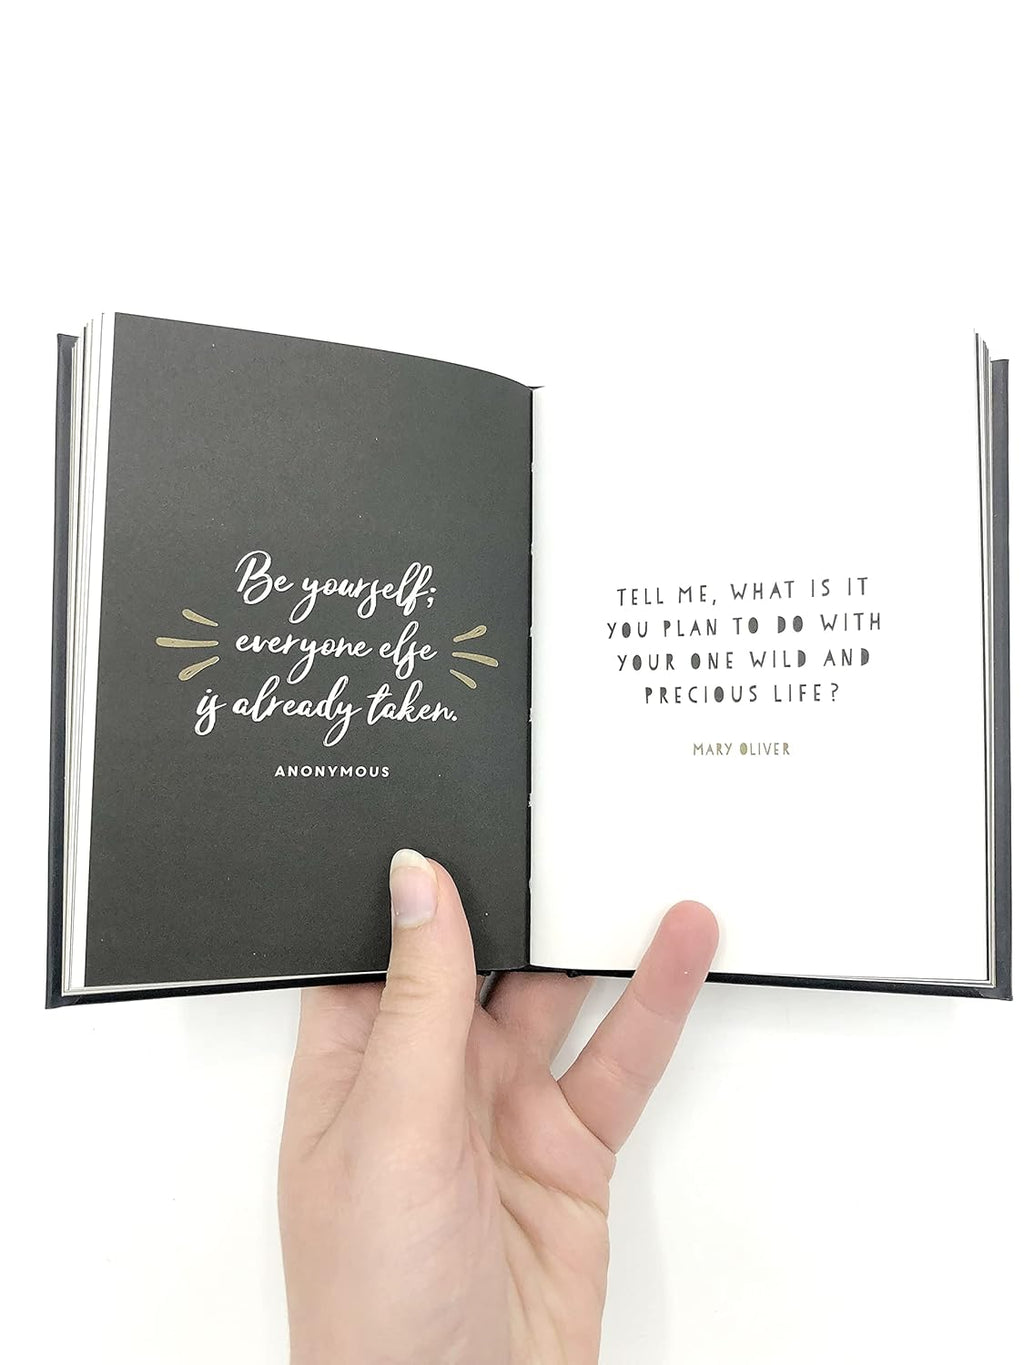 Be yourself;
everyone else
is already taken.
ANONYMOUS
TELL ME, WHAT IS IT
YOU PLAN TO DO WITH
YOUR ONE WILD AND
PRECIOUS LIFE?
MARY OLIVER